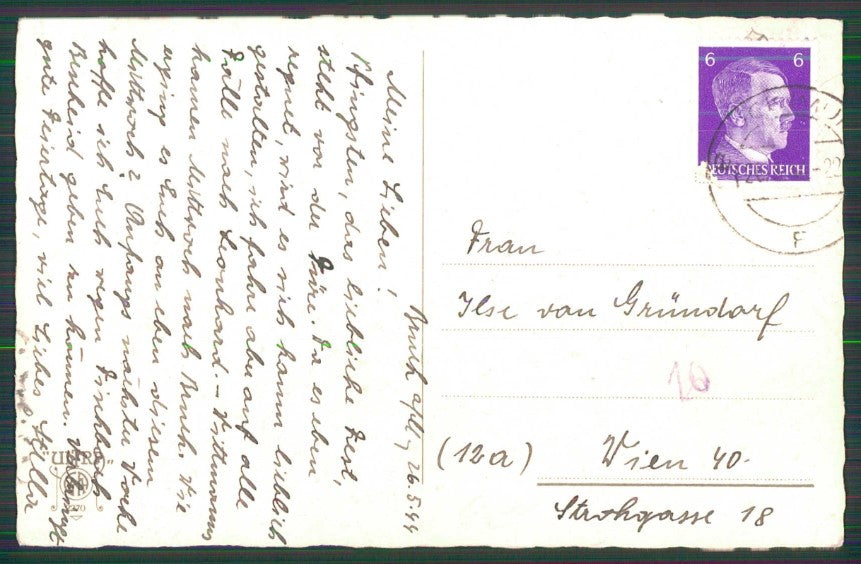 Bruck a/L, 26.5.44
Meine Lieben!
Pfingsten, das liebliche Fest,
steht vor der Türe. Da es eben
regnet, wird es sich kaum lieblich
gestalten, ich fahre aber auf alle
Fälle nach Leonhard. –
kamen Mittwoch nach Bruck. Wie
erging es Euch an eben diesem
Mittwoch? Anfangs nächster Woche
hoffe ich Euch wegen Fischbach
Bescheid geben zu können.
gute Feiertage, viel Liebes
6 6
DEUTSCHES REICH
Frau
Ilse von Gründorf
10
(12a) Wien 40.
Strohgasse 18